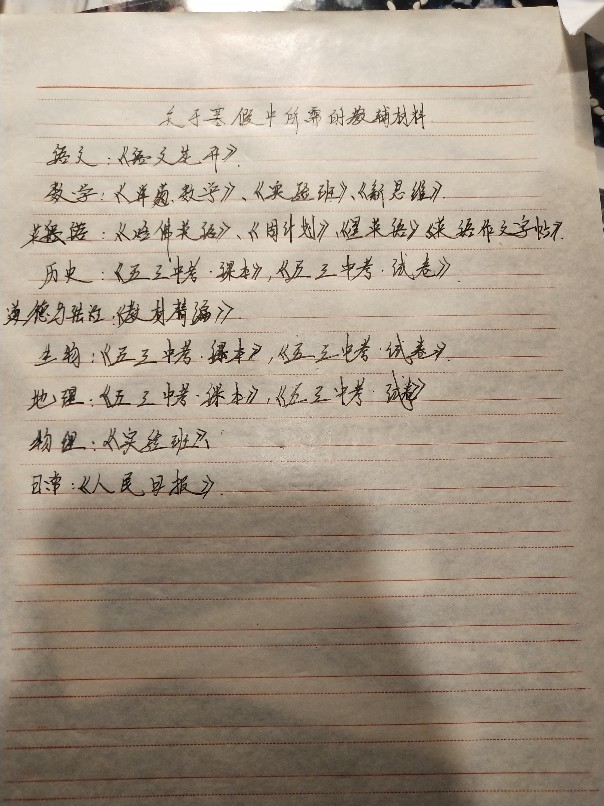 关于暑假中所需的教辅材料
语文:《语文生开》.
数学:《洋葱数学》、《实验班》、《新思维》
英语:《哈佛英语》、《周计划》《星英语》《英语作文字帖》.
历史:《五三中考·课本》,《五三中考·试卷》.
道德与法治:《教材精编》.
生物:《五三中考·课本》,《五三中考·试卷》.
地理:《五三中考·课本》,《五三中考·试卷》
物理:《实验班》、
日常:《人民日报》.